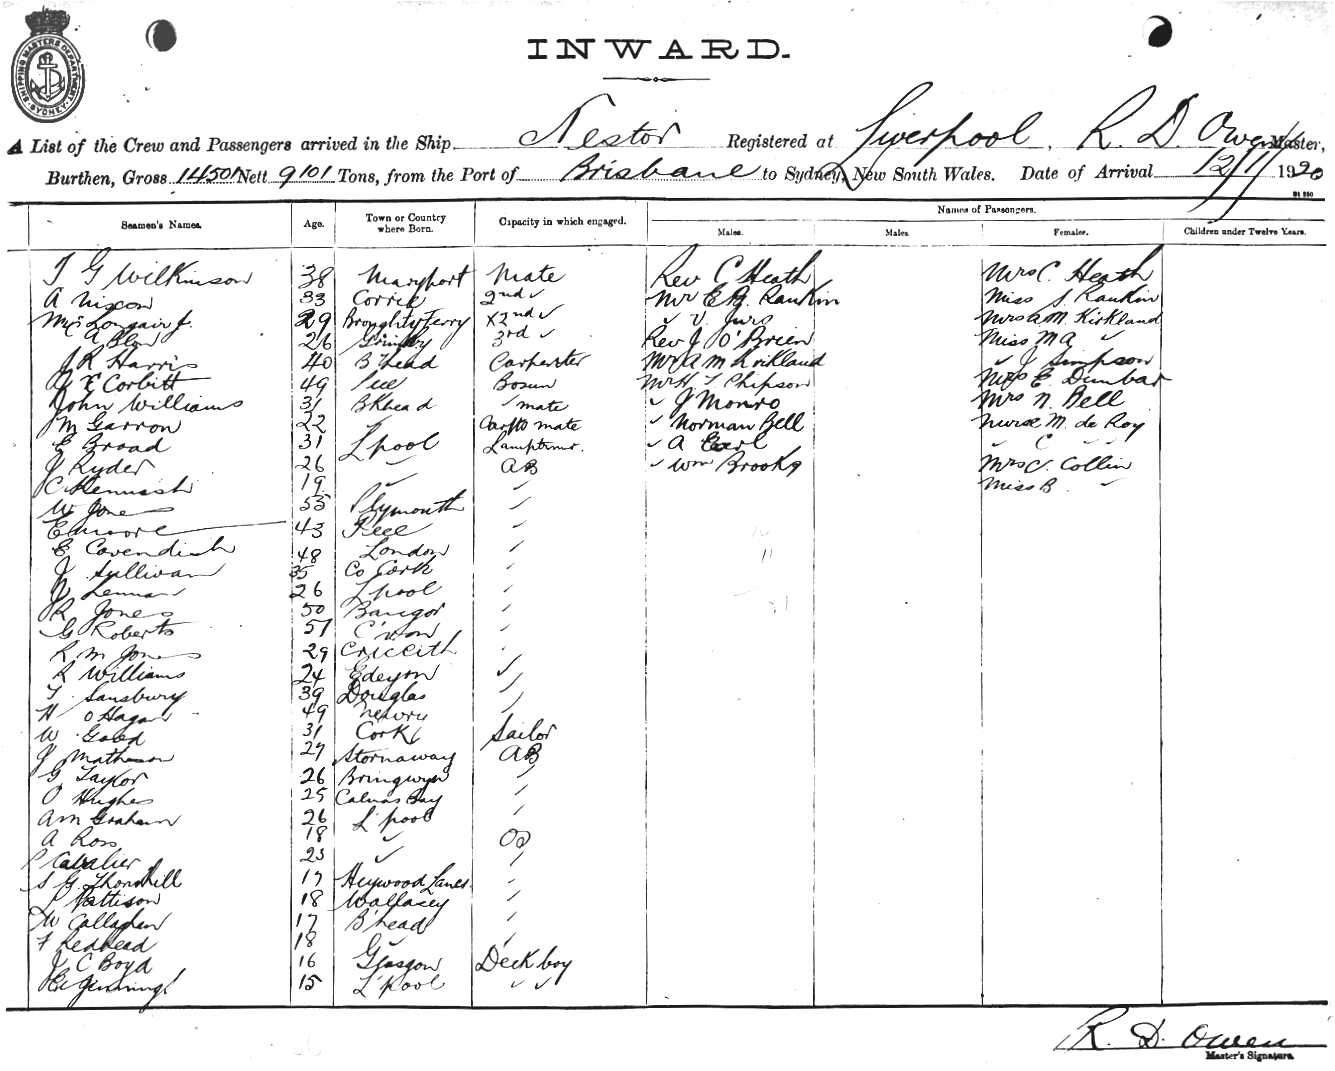 SHIPPING MASTERS DEPARTMENT SYDNEY
INWARD.
A List of the Crew and Passengers arrived in the Ship Nestor Registered at Liverpool, R. D. Owen Master,
Burthen, Gross 14501 Nett 9101 Tons, from the Port of Brisbane to Sydney, New South Wales. Date of Arrival 12/1/ 1920
Seamen's Names. Age. Town or Country where Born. Capacity in which engaged. Names of Passengers.
Males. Males. Females. Children under Twelve Years.
T G Wilkinson 38 Maryport Mate Rev C Heath Mrs C. Heath
A Nixon 33 Corrie 2nd ✓ Mr E B. Rankin Miss S Rankin
Longair J. 29 Broughty Ferry X2nd ✓ ✓ V. Mrs A M. Kirkland
A Blow 26 Grimsby 3rd ✓ Rev J O'Brien Miss M A ✓
J R Harris 40 B'head Carpenter Mr A M Kirkland ✓ J Simpson
E Corbitt 49 Bosun Mr H T Phipson Mrs E Dunbar
John Williams 31 BKhead ✓ mate ✓ J Monro Mrs N. Bell
J M Garron 22 mate ✓ Norman Bell Nurse M. de Roy
E Broad 31 L'pool Lamptrmr. ✓ A Earl ✓ C ✓ ✓
J Ryder 26 ✓ AB ✓ Wm Brooks Mrs V. Collin
C Kennish 19 ✓ ✓ Miss B ✓
W Jones 33 Plymouth ✓
E Moore 43 Peel ✓
E Cavendish 48 London ✓
J Sullivan 35 Co Cork ✓
Lennan 26 L'pool ✓
R Jones 50 Bangor ✓
G Roberts 51 C'von ✓
R M Jones 29 Criccith ✓
R Williams 24 Edeyrn ✓
T Sansbury 39 Douglas ✓
H O'Hagan 49 Newry ✓
W 31 Cork Sailor
J Matheson 27 Stornaway AB
G Taylor 26 Bringwyn ✓
O Hughes 25 Bay ✓
A M Graham 26 L'pool ✓
A Ross 18 ✓ OS
P Cavalier 23 ✓ ✓
S G. Thornhill 17 Heywood Lancs. ✓
P Pattison 18 Wallasey ✓
W Callaghan 17 B'head ✓
F Redhead 18 ✓ ✓
J C Boyd 16 Glasgow Deck boy
15 L'pool ✓ ✓
R. D. Owen
Master's Signature.